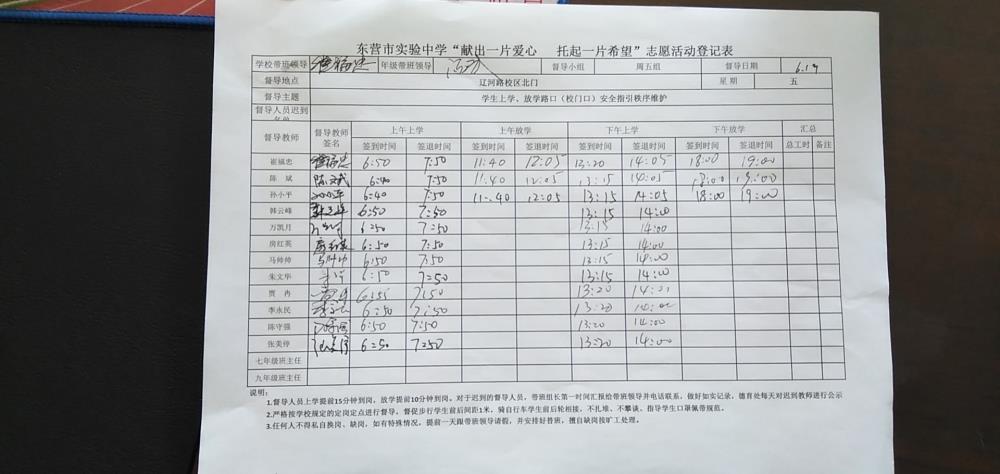 东营市实验中学“献出一片爱心 托起一片希望”志愿活动登记表
学校带班领导 崔福忠 年级带班领导 督导小组 周五组 督导日期 6.19
督导地点 辽河路校区北门 星期 五
督导主题 学生上学、放学路口（校门口）安全指引秩序维护
督导人员迟到
督导教师 督导教师签名 上午上学 上午放学 下午上学 下午放学 汇总
签到时间 签退时间 签到时间 签退时间 签到时间 签退时间 签到时间 签退时间 总工时 备注
崔福忠 崔福忠 6:50 7:50 11:40 12:05 13:20 14:05 18:00 19:00
陈 斌 陈斌 6:40 7:50 11:40 12:05 13:15 14:05 18:00 19:00
孙小平 孙小平 6:40 7:50 11:40 12:05 13:15 14:05 18:00 19:00
韩云峰 韩云峰 6:50 7:50 13:15 14:00
万凯月 6:50 7:50 13:15 14:00
房红英 房红英 6:50 7:50 13:15 14:00
马帅帅 马帅帅 6:50 7:50 13:15 14:00
朱文华 6:50 7:50 13:15 14:00
贾 冉 6:55 7:50 13:20 14:00
李永民 李永民 6:50 7:50 13:20 14:00
陈守强 6:50 7:50 13:20 14:00
张美停 6:50 7:50 13:20 14:00
七年级班主任
九年级班主任
说明：
1.督导人员上学提前15分钟到岗，放学提前10分钟到岗。对于迟到的督导人员，带班组长第一时间汇报给带班领导并电话联系，做好如实记录，德育处每天对迟到教师进行公示
2.严格按学校规定的定岗定点进行督导，督促步行学生前后间距1米，骑自行车学生前后轮相接，不扎堆、不攀谈，指导学生口罩佩带规范。
3.任何人不得私自换岗、缺岗，如有特殊情况，提前一天跟带班领导请假，并安排好替班，擅自缺岗按旷工处理。